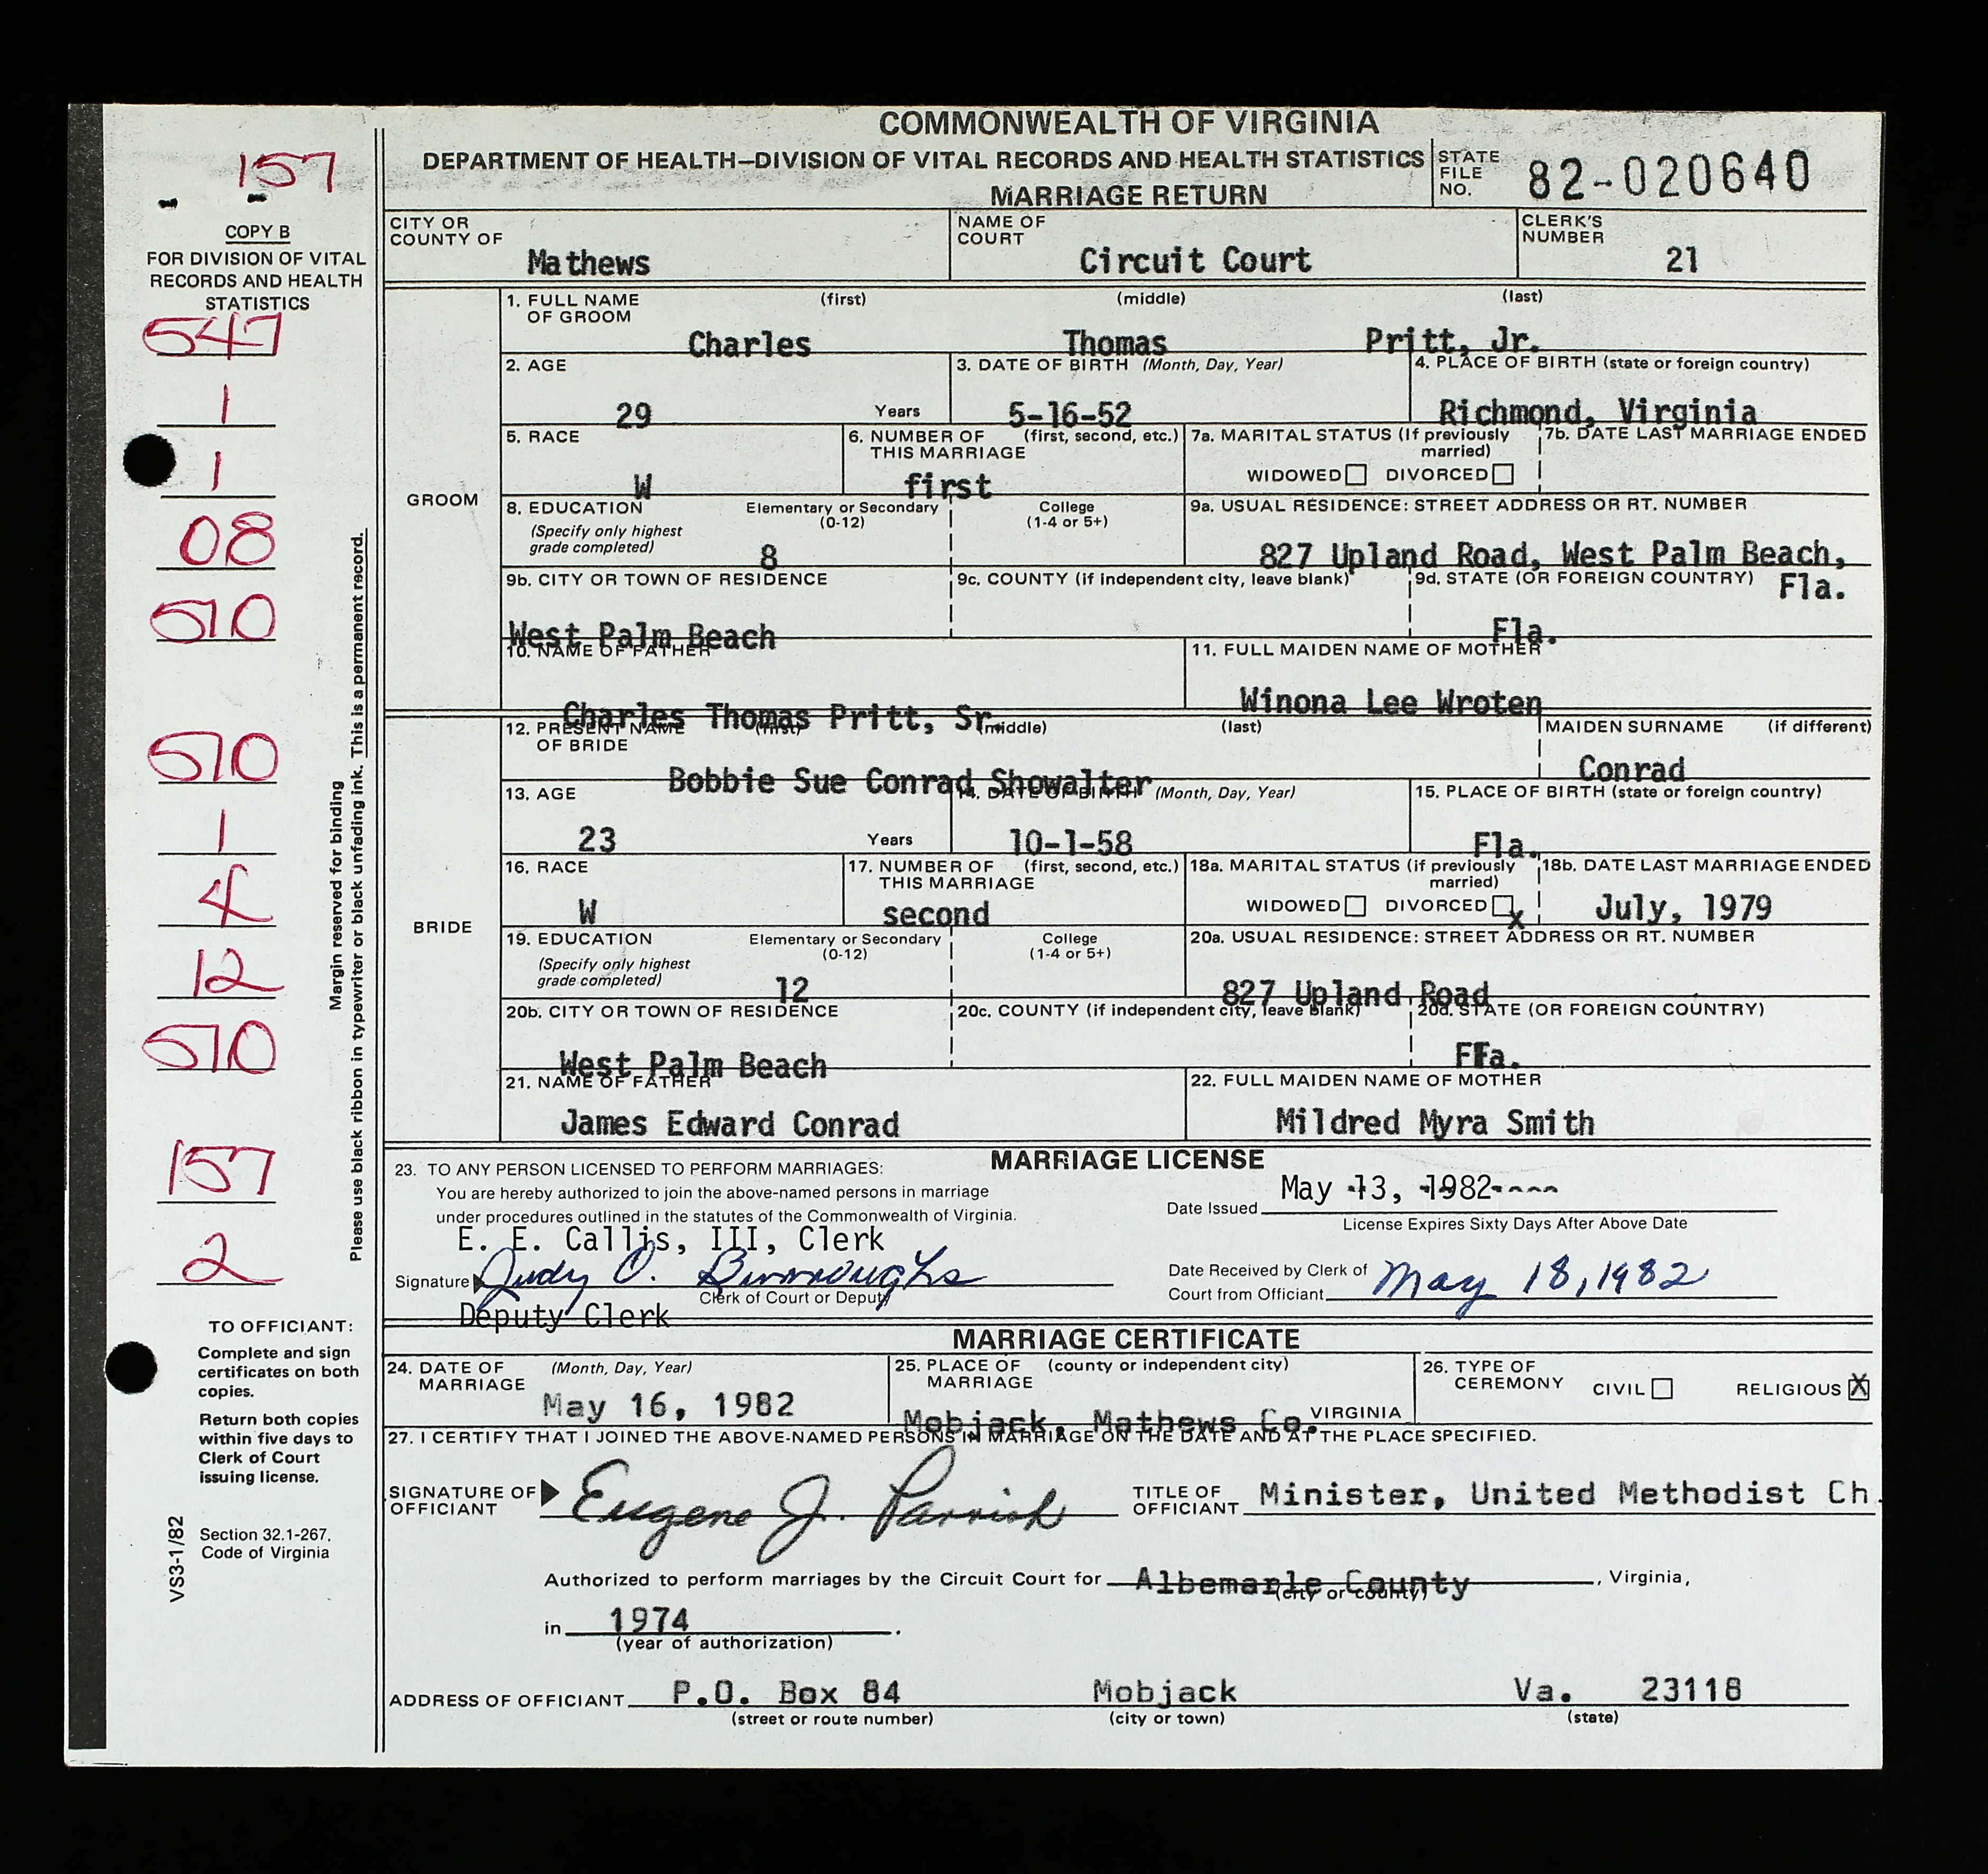 COMMONWEALTH OF VIRGINIA
DEPARTMENT OF HEALTH—DIVISION OF VITAL RECORDS AND HEALTH STATISTICS
MARRIAGE RETURN
STATE FILE NO. 82-020640
157
COPY B
FOR DIVISION OF VITAL
RECORDS AND HEALTH
STATISTICS
547
1
1
08
510
510
1
4
12
510
157
2
Margin reserved for binding
Please use black ribbon in typewriter or black unfading ink. This is a permanent record.
TO OFFICIANT:
Complete and sign
certificates on both
copies.
Return both copies
within five days to
Clerk of Court
issuing license.
VS3-1/82
Section 32.1-267,
Code of Virginia
CITY OR COUNTY OF Mathews
NAME OF COURT Circuit Court
CLERK'S NUMBER 21
GROOM
1. FULL NAME OF GROOM (first) (middle) (last)
Charles Thomas Pritt, Jr.
2. AGE 29 Years
3. DATE OF BIRTH (Month, Day, Year) 5-16-52
4. PLACE OF BIRTH (state or foreign country) Richmond, Virginia
5. RACE W
6. NUMBER OF THIS MARRIAGE (first, second, etc.) first
7a. MARITAL STATUS (If previously married) WIDOWED DIVORCED
7b. DATE LAST MARRIAGE ENDED
8. EDUCATION (Specify only highest grade completed) Elementary or Secondary (0-12) 8 College (1-4 or 5+)
9a. USUAL RESIDENCE: STREET ADDRESS OR RT. NUMBER
827 Upland Road, West Palm Beach, Fla.
9b. CITY OR TOWN OF RESIDENCE West Palm Beach
9c. COUNTY (if independent city, leave blank)
9d. STATE (OR FOREIGN COUNTRY) Fla.
10. NAME OF FATHER Charles Thomas Pritt, Sr.
11. FULL MAIDEN NAME OF MOTHER Winona Lee Wroten
BRIDE
12. PRESENT NAME OF BRIDE (first) (middle) (last)
Bobbie Sue Conrad Showalter
MAIDEN SURNAME (if different) Conrad
13. AGE 23 Years
14. DATE OF BIRTH (Month, Day, Year) 10-1-58
15. PLACE OF BIRTH (state or foreign country) Fla.
16. RACE W
17. NUMBER OF THIS MARRIAGE (first, second, etc.) second
18a. MARITAL STATUS (if previously married) WIDOWED DIVORCED X
18b. DATE LAST MARRIAGE ENDED July, 1979
19. EDUCATION (Specify only highest grade completed) Elementary or Secondary (0-12) 12 College (1-4 or 5+)
20a. USUAL RESIDENCE: STREET ADDRESS OR RT. NUMBER
827 Upland Road
20b. CITY OR TOWN OF RESIDENCE West Palm Beach
20c. COUNTY (if independent city, leave blank)
20d. STATE (OR FOREIGN COUNTRY) Fla.
21. NAME OF FATHER James Edward Conrad
22. FULL MAIDEN NAME OF MOTHER Mildred Myra Smith
MARRIAGE LICENSE
23. TO ANY PERSON LICENSED TO PERFORM MARRIAGES:
You are hereby authorized to join the above-named persons in marriage
under procedures outlined in the statutes of the Commonwealth of Virginia.
Date Issued May 13, 1982----
License Expires Sixty Days After Above Date
E. E. Callis, III, Clerk
Signature Judy O. Burroughs
Clerk of Court or Deputy
Deputy Clerk
Date Received by Clerk of Court from Officiant May 18, 1982
MARRIAGE CERTIFICATE
24. DATE OF MARRIAGE (Month, Day, Year) May 16, 1982
25. PLACE OF MARRIAGE (county or independent city) Mobjack, Mathews Co. VIRGINIA
26. TYPE OF CEREMONY CIVIL RELIGIOUS X
27. I CERTIFY THAT I JOINED THE ABOVE-NAMED PERSONS IN MARRIAGE ON THE DATE AND AT THE PLACE SPECIFIED.
SIGNATURE OF OFFICIANT Eugene J. Parrish
TITLE OF OFFICIANT Minister, United Methodist Ch.
Authorized to perform marriages by the Circuit Court for Albemarle County, Virginia,
(city or county)
in 1974.
(year of authorization)
ADDRESS OF OFFICIANT P.O. Box 84 Mobjack Va. 23118
(street or route number) (city or town) (state)